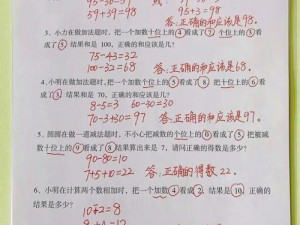 59+39=98 95+3=98
答:正确的和应该是98。
3、小力在做加法题时,把一个加数十位上的④看成了⑦,个位上的③
看成⑤结果和是100,正确的和应该是几?
75-43=32
100-32=68 答:正确的和应该是68。
4、小明在做加法题时,把一个数个位上的⑤看成了⑧,把十位上的⑥
看成③结果和是70,正确的和应该是几?
8-5=3 60-30=30
70-3+30=97 答:正确的和应该是97。
5、圆圆在做一道减法题时,不小心把减数的个位上的
十位上的⑨看成了⑧结果算出来是7,请问正确的得数是多少?
90-80=10
7+5+10=22 答:正确的得数22。
6、小明在计算两个数相加时,把一个加数④看成②,结果是⑩,正确的
结果是多少?
10-2=8
8+4=12